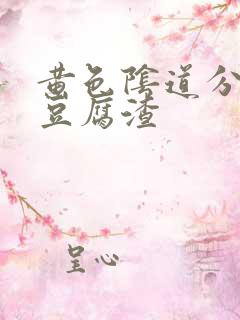 黄色陰道分
豆腐渣
呈心